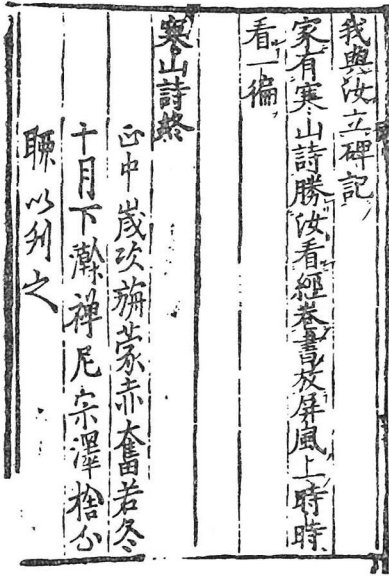 我與汝立碑記
家有寒山詩勝汝看經卷書放屏風上時時
看一徧
寒山詩終
正中歲次旃蒙赤奮若冬
十月下澣禅尼宗澤捨
聊以刋之